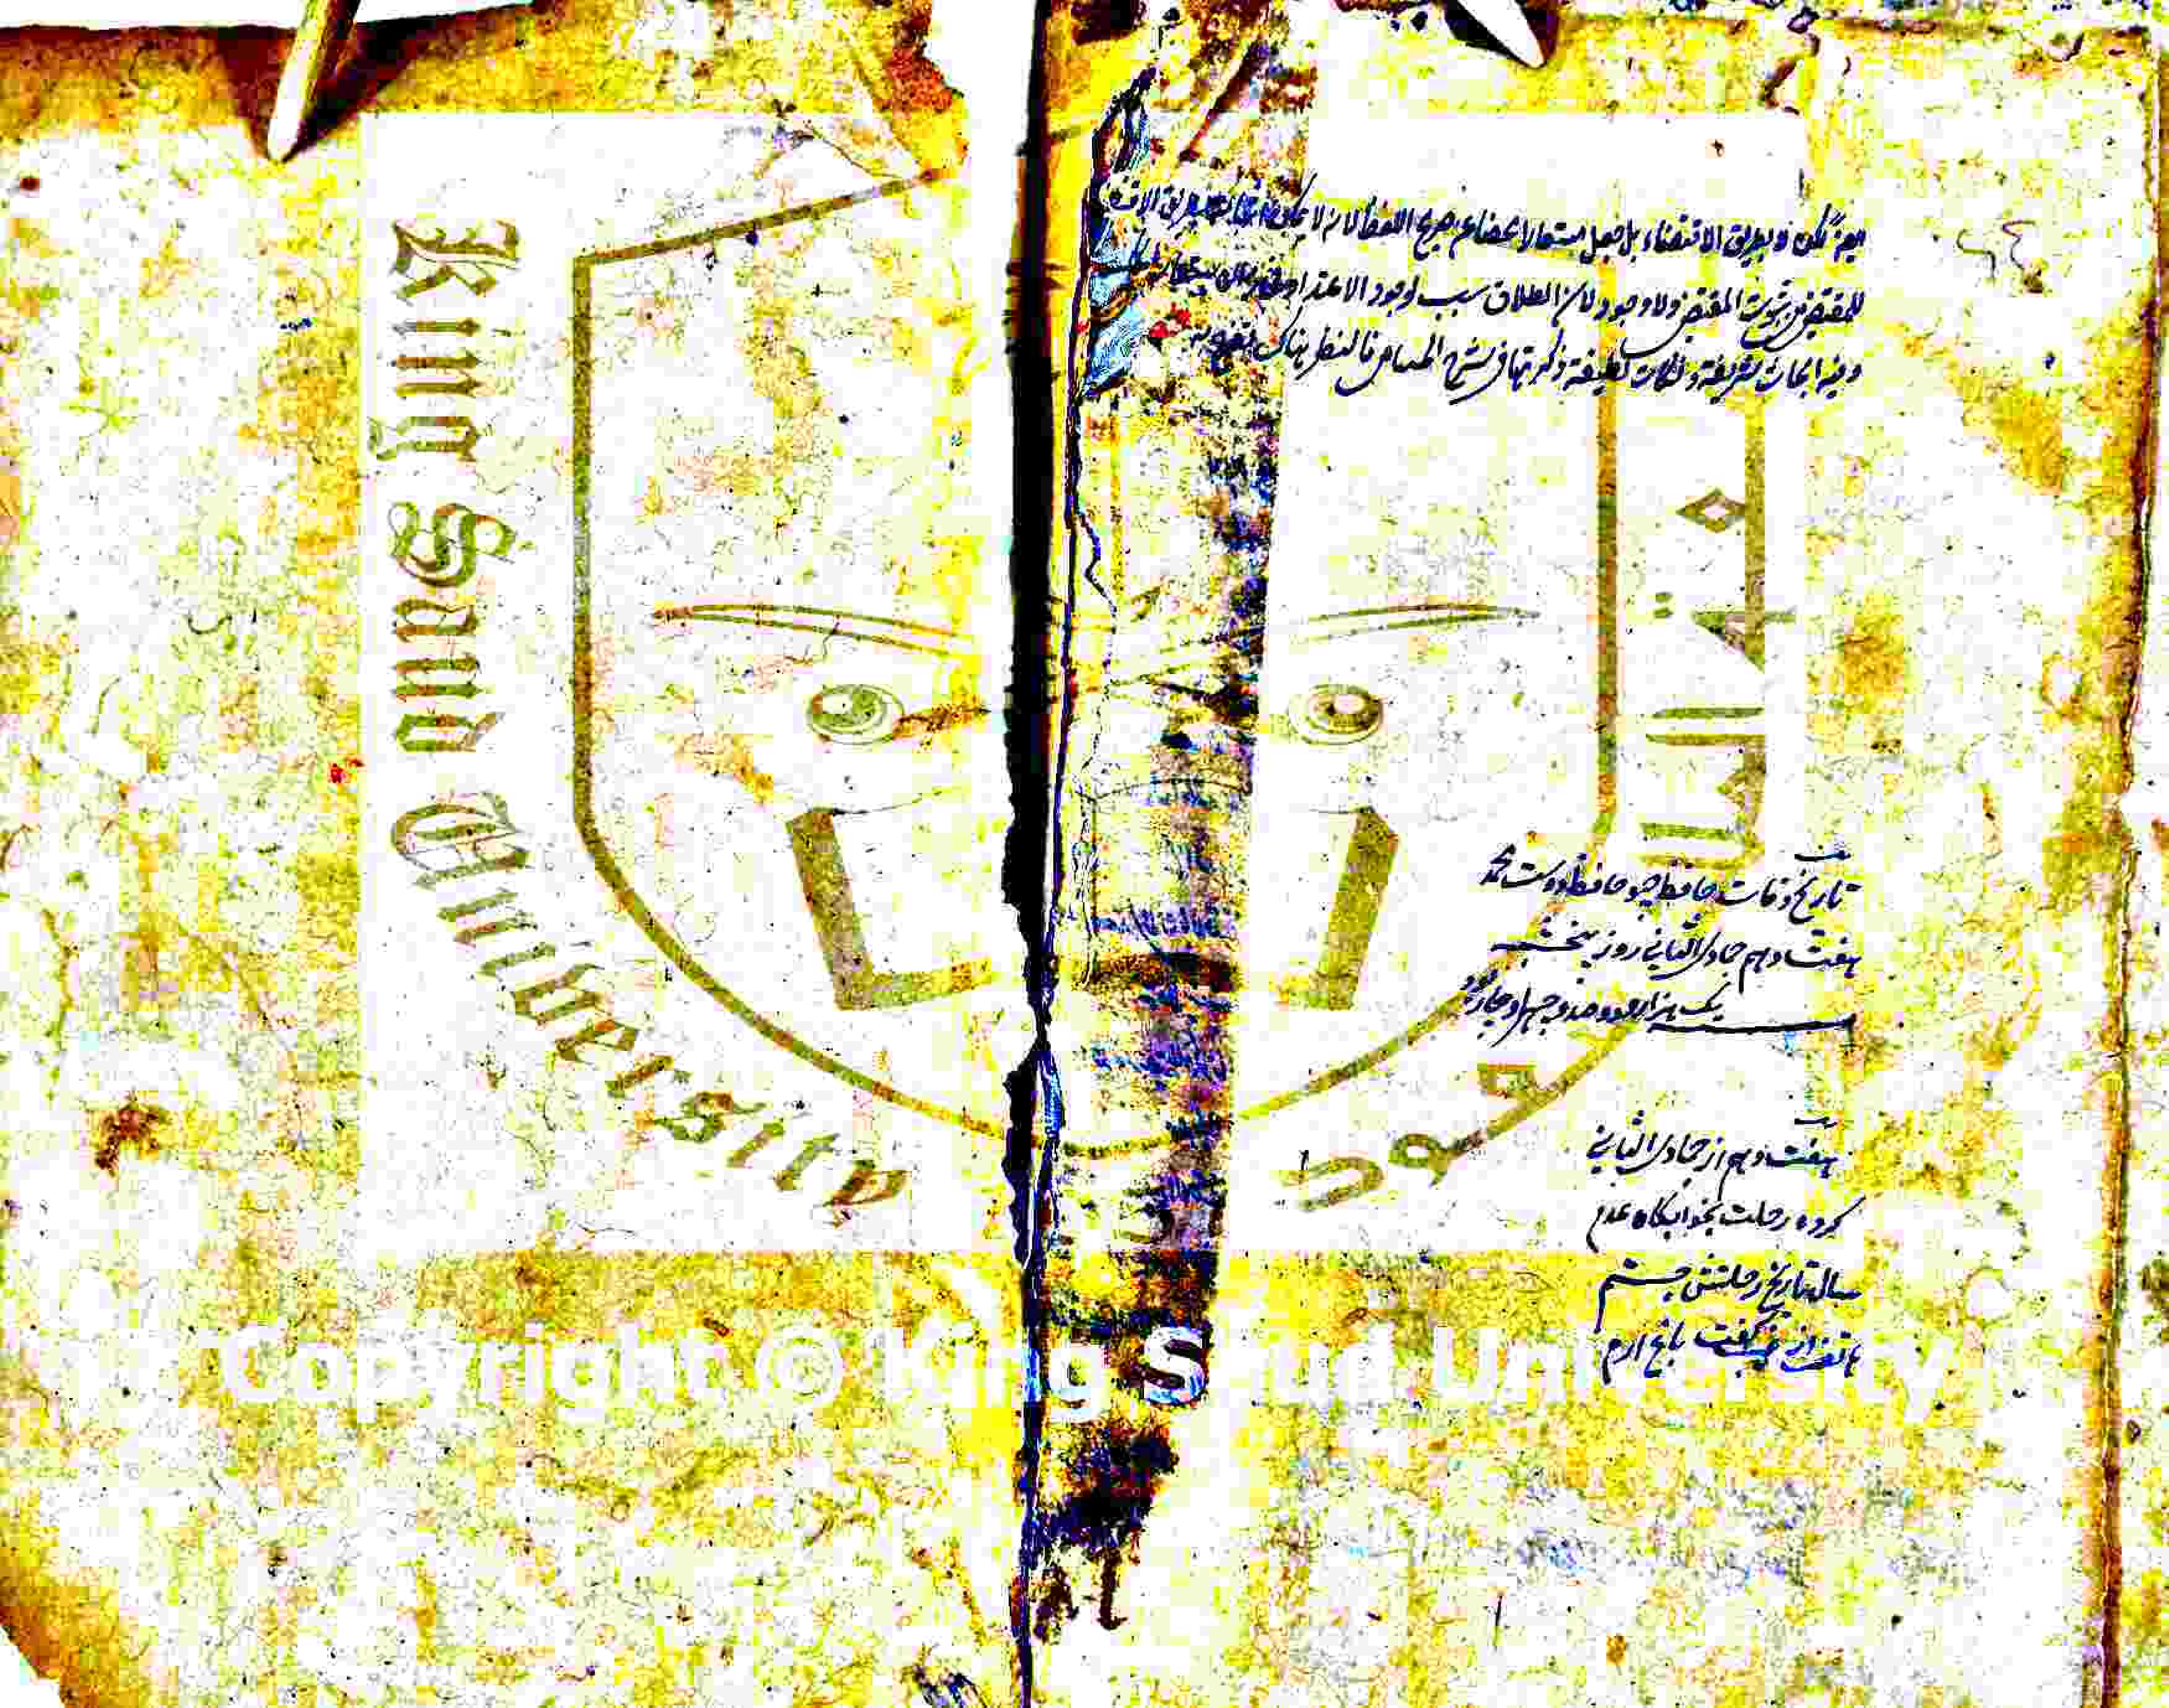 بطريق الاقتضاء بل جعل مستعارا محضا عن صريح اللفظ لان لا يمكن
للمقتضى ثبوت المقتضى ولا وجود لان الطلاق سبب لوجود الاعتداد
وفيه ابحاث شريفة ونكات لطيفة ذكرتها في شرح الحسامي فالنظر هناك
تاريخ وفات حافظ جيو حافظ دوست محمد
هفت دهم جمادى الثاني روز پنجشنبه
يك هزار و دو صد و چهل و چار
هفت دهم از جمادى الثاني
كرده رحلت بخوابگاه عدم
سال تاريخ رحلتش جستم
هاتف از غيب گفت باغ ارم
King Saud University
Copyright © King Saud University